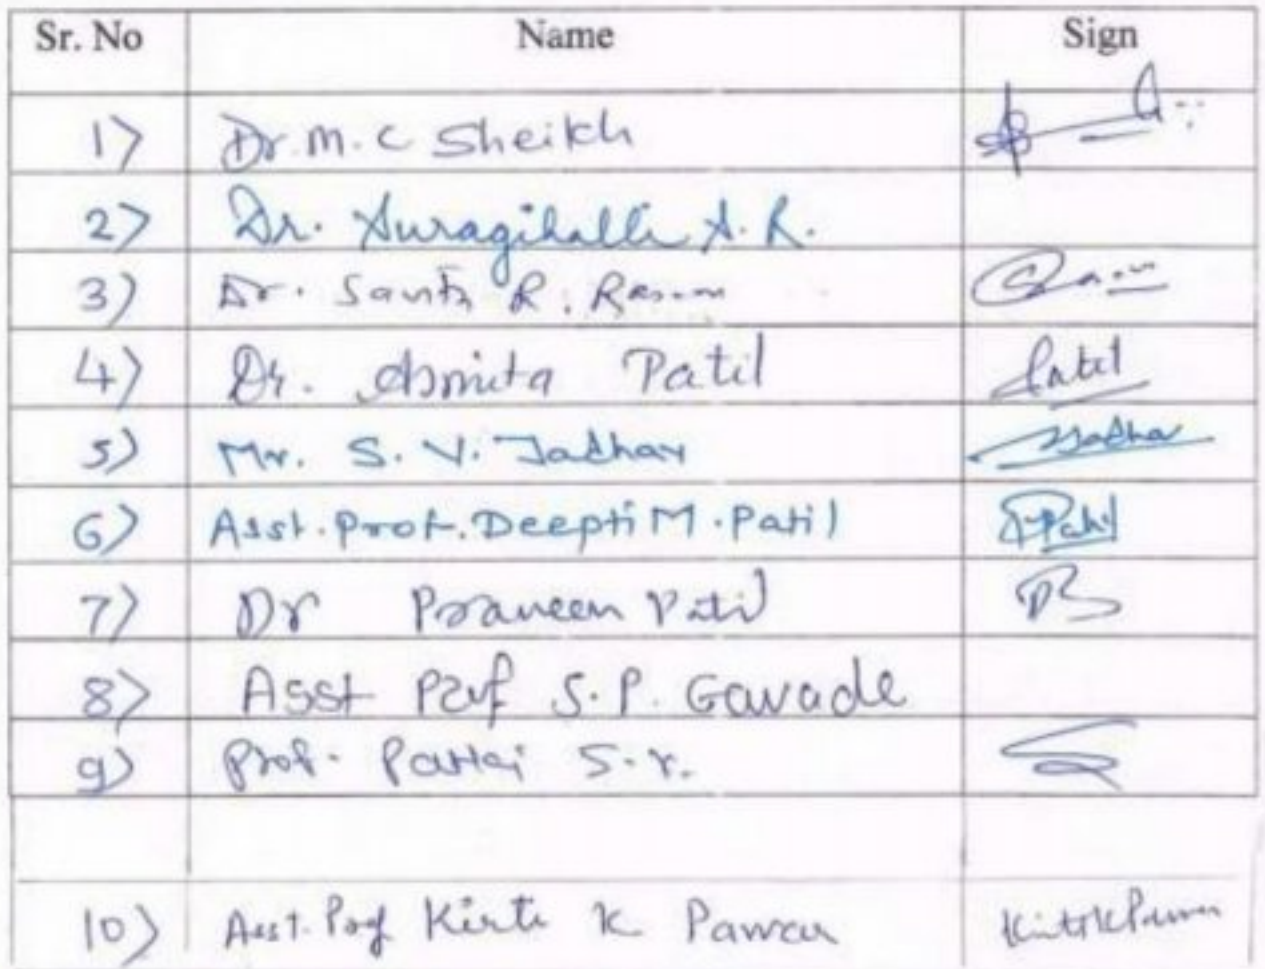 Sr. No Name Sign
1) Dr. M. C Sheikh
2) Dr. Auragihalli A. R.
3) Dr. R.
4) Dr. Asmita Patil Patil
5) Mr. S. V. Jadhav Jadhav
6) Asst. Prof. Deepti M. Patil DPatil
7) Dr Praveen Patil
8) Asst Prof S. P. Gavade
9) Prof. S. Y.
10) Asst. Prof Kirti K Pawar KirtiKPawar